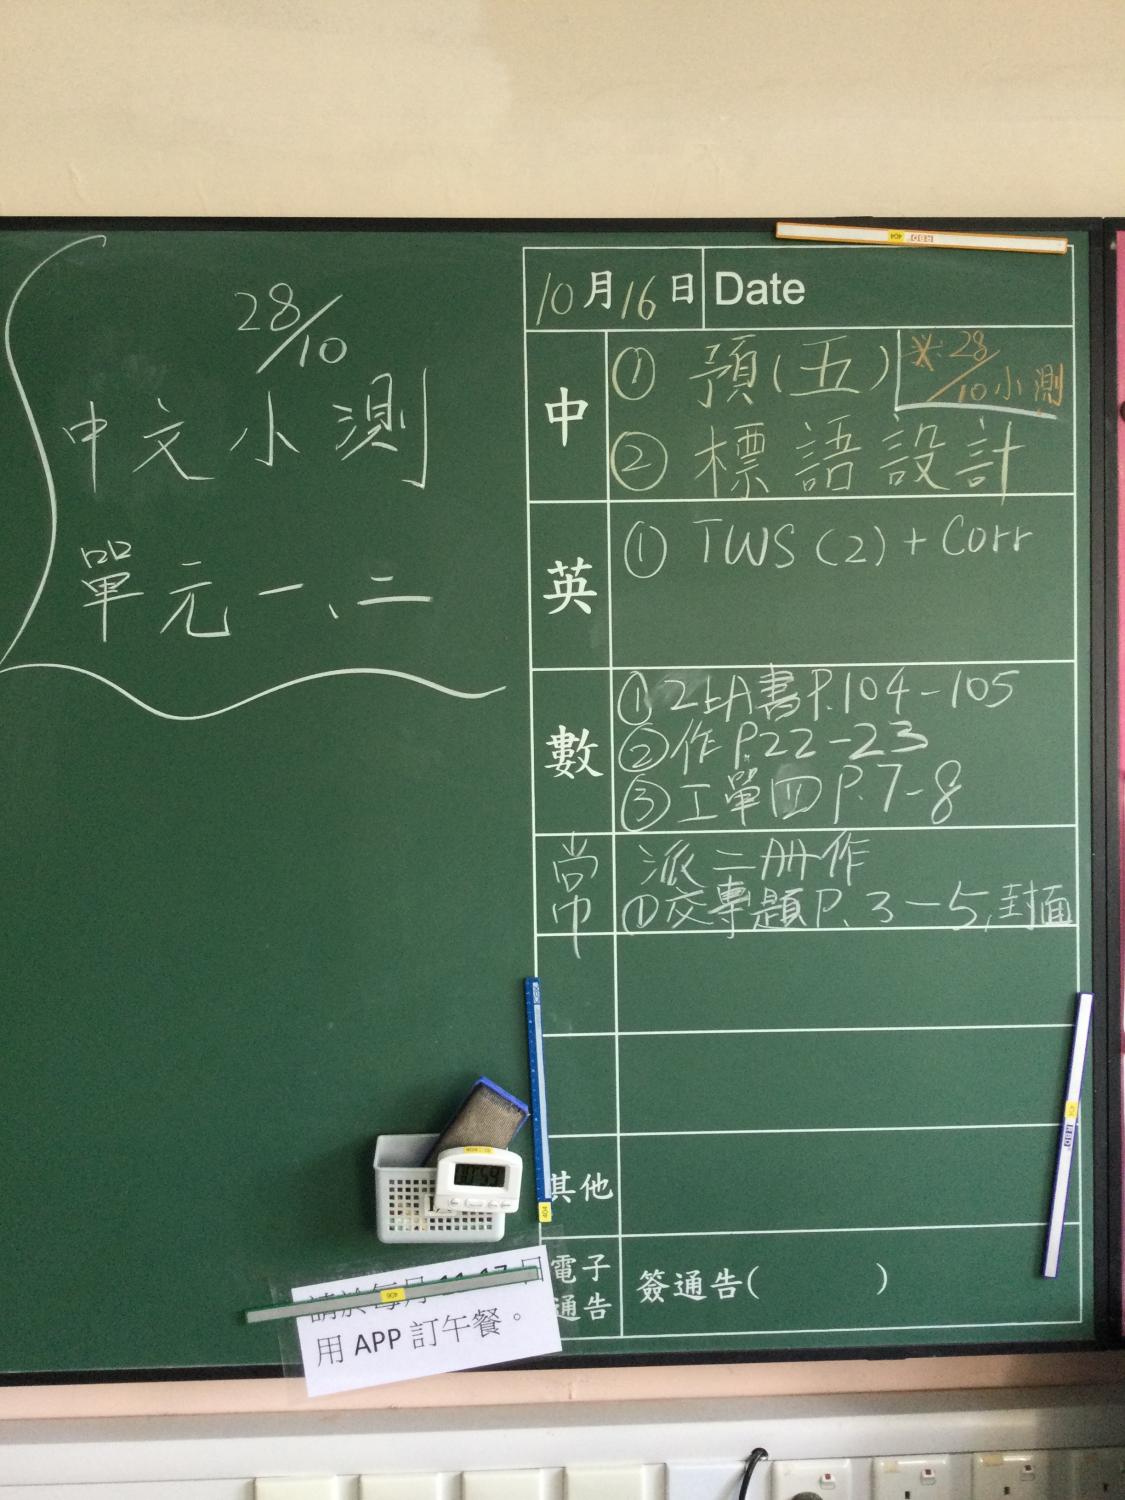 28/10
中文小測
單元一、二
10月16日 Date
中
① 預(五)
※28/10小測
② 標語設計
英
① TWS(2)+Corr
數
① 2上A書P.104-105
② 作P.22-23
③ 工單四P.7-8
常
派二冊作
①交專題P.3-5,封面
其他
電子通告
簽通告( )
請於每月11-17日
用APP訂午餐。